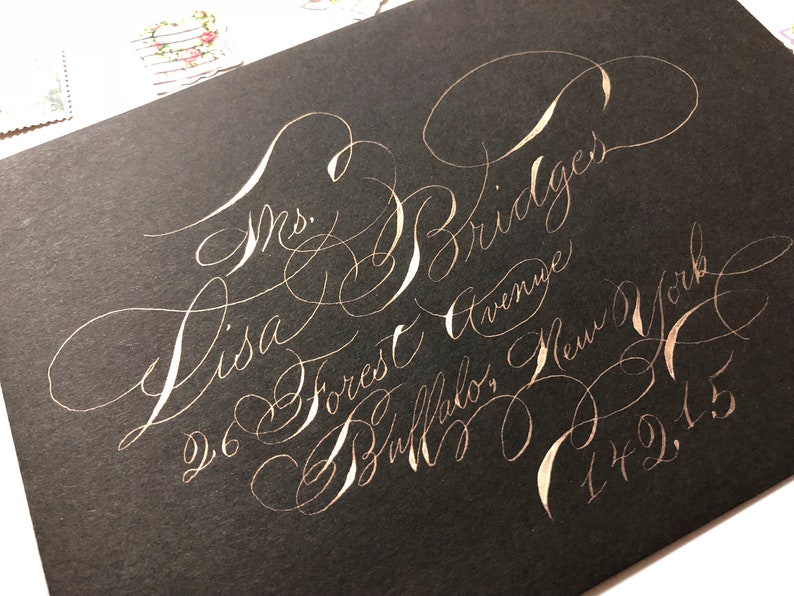 Ms.
Lisa Bridges
26 Forest Avenue
Buffalo, New York
14215